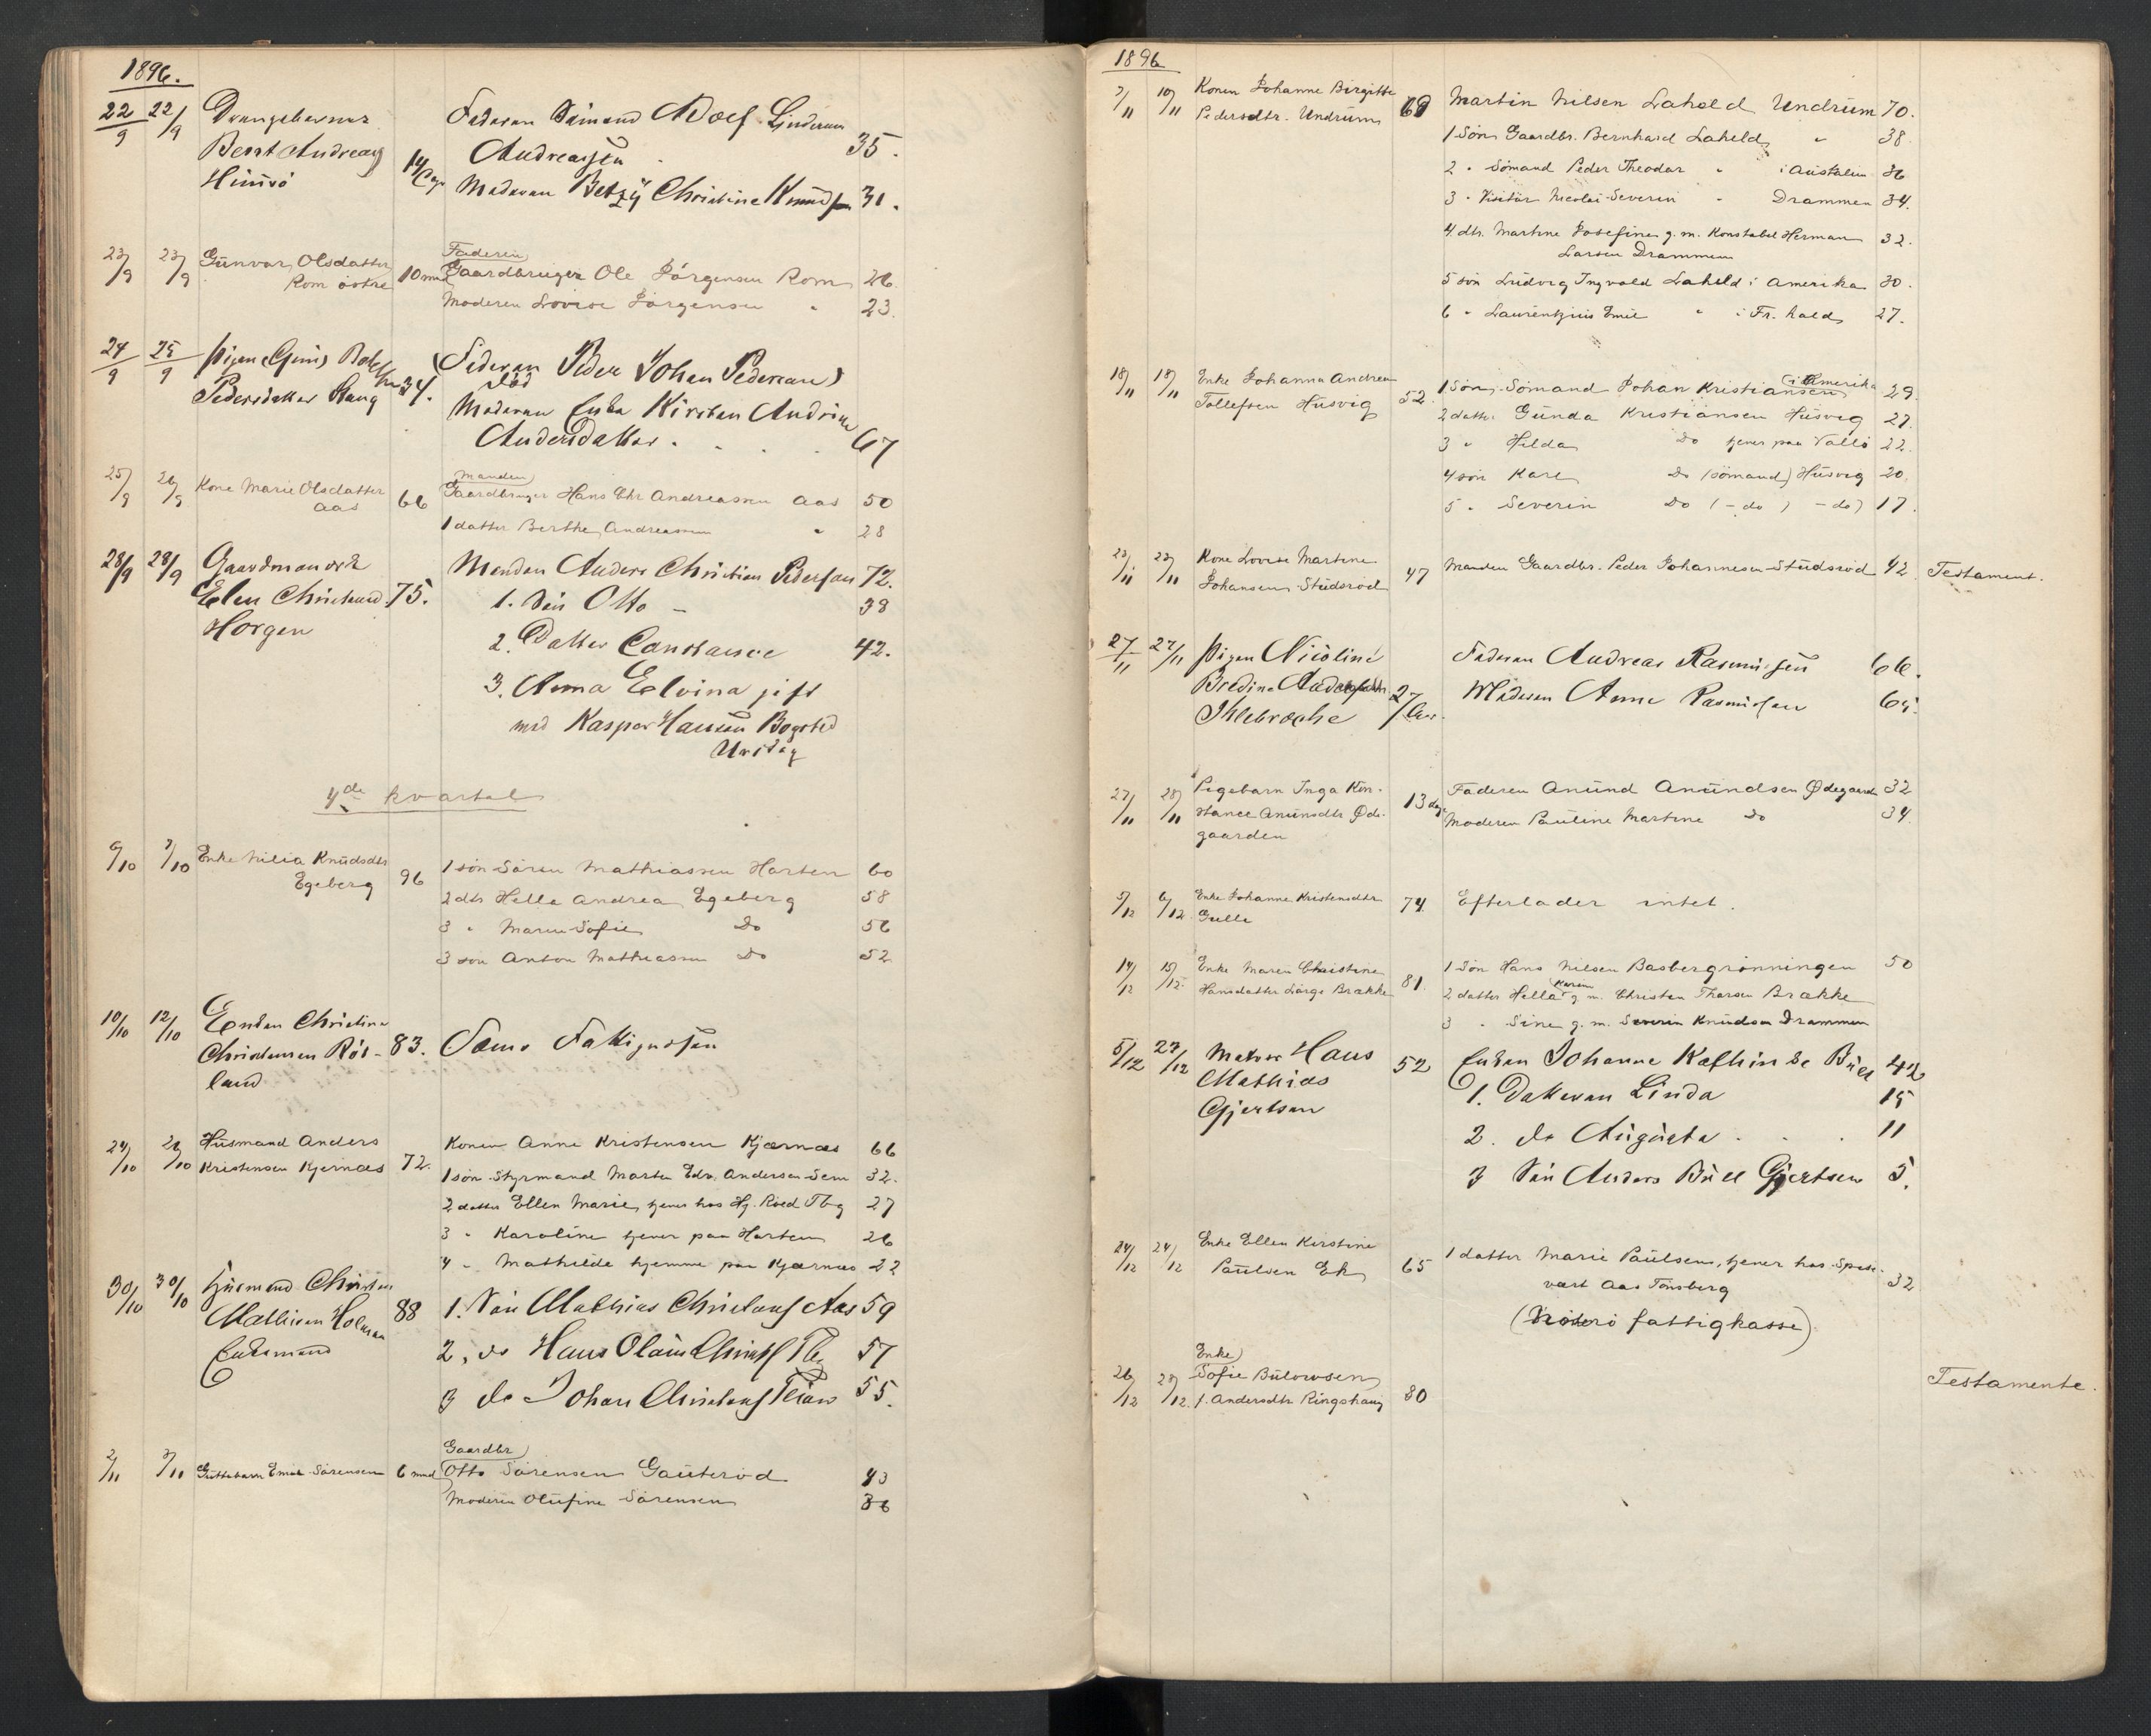 1896.
22/9 22/9 Drengebarnet Faderen Sömand Adolf Linderum
Bernt Andreas 14 Dage Andreassen 35.
Husvö Moderen Betzy Christine Knuds 31.
23/9 23/9 Gunvor Olsdatter Faderen
Rom östre 10 mnd Gaardbruger Ole Jörgensen Rom 26.
Moderen Lovise Jörgensen " 23.
24/9 25/9 Pigen Gjine Faderen Peder Johan Pedersen
Pedersdatter Haug 34. död
Moderen Enke Kirsten Andrine
Andersdatter . . . 67
25/9 26/9 Kone Marie Olsdatter Manden
Aas 66 Gaardbruger Hans Chr Andreassen Aas 50
1 datter Berthe Andreassen " 28
28/9 28/9 Gaardmands Manden Anders Christian Pedersen 72.
Elen 75. 1. Sön Otto - 38
Horgen 2. Datter Constance 42.
3. Anna Elvina gift
med Kasper Hansen Bogsted
4de kvartal
6/10 7/10 Enke Nilia Knudsdtr 1 sön Sören Mathiassen Horten 60
Egeberg 96 2 dtr Helle Andrea Egeberg 58
3 " Maren Sofie Do 56
3 sön Anton Mathiassen Do 52
10/10 12/10 Enken Christine
Christensen Rös- 83.
land
24/10 26/10 Husmand Anders Konen Anne Kristensen Kjærnæs 66
Kristensen Kjernæs 72. 1 sön Styrmand Martin Edv. Andersen Sem 32.
2 datter Ellen Marie, tjener hos Hj. Röed Tbg 27
3 " Karoline tjener paa Horten 26
4 " Mathilde hjemme paa Kjærnæs 22
30/10 30/10 Husmand Christen 1. Sön Mathias Christens Aas 59
Mathisen Holmen 88 2. do Hans Olaus Christ Tbg 57
Enkemand 3 do Johan Christens 55.
2/11 3/11 Guttebarn Emil Sörensen 6 mnd Gaardbr
Otto Sörensen Gauteröd 43
Moderen Olufine Sörensen 36
1896
7/11 10/11 Konen Johanne Birgitte Martin Nilsen Laheld Undrum 70.
Pedersdtr. Undrum 69 1 Sön Gaardbr. Bernhard Laheld " 38.
2 " Sömand Peder Theodor " i Australien 36
3 " Visitör Nicolai Severin " Drammen 34.
4. dtr. Martine Josefine g. m. Konstabel Herman 32.
Larsen Drammen
5 sön Ludvig Ingvald Laheld i Amerika 30.
6 " Laurentzius Emil " i Fr. hald 27.
18/11 18/11 Enke Johanna Andrea 1 Sön. Sömand Johan Kristiansen i Amerika 29.
Tollefsen Husvig 52. 2 datter Gunda Kristiansen Husvig 27.
3 " Hilda Do tjener paa Vallö 22.
4 sön Karl Do (sömand) Husvig 20.
5 " Severin Do (- do) - do) 17.
23/11 23/11 Kone Lovise Martine Manden Gaardbr. Peder Johannesen Studsröd 42 Testament.
Johansen Studsröd 47
27/11 27/11 Pigen Nicoline Faderen Andreas Rasmussen 66.
Bredine 27 Aar. Moderen Anne Rasmussen 65.
Ihlebrække
27/11 28/11 Pigebarn Inga Kon- Faderen Anund Anundsen Ødegaarden 32
stance Anunsdtr Øde- 13 dage Moderen Pauline Martine Do 34.
gaarden
5/12 6/12. Enke Johanne Kristensdtr 74. Efterlader intet.
Gulli
14/12 15/12. Enke Maren Christine 1 Sön Hans Nilsen Basbergrönningen 50
Hansdatter Lörge Brække 81. 2 datter Hella Karen g. m. Christen Thorsen Brække
3 " Sine g. m. Severin Knudsen Drammen
5/12 23/12 Matros Hans 52 Enken Johanne Kathinke Büll 42
Mathias 1. Datteren Linda 15
Gjertsen 2. do Augusta . . . 11
3 Sön Anders Büll Gjertsen 5.
24/12 24/12 Enke Ellen Kirstine 1 datter Marie Paulsen, tjener hos Spise-
Paulsen Ek 65 vært Aas Tönsberg 32
(Nöterö fattigkasse)
26/12 28/12. Enke
Sofie Bülowsen Testamente.
f. Andersdtr Ringshaug 80